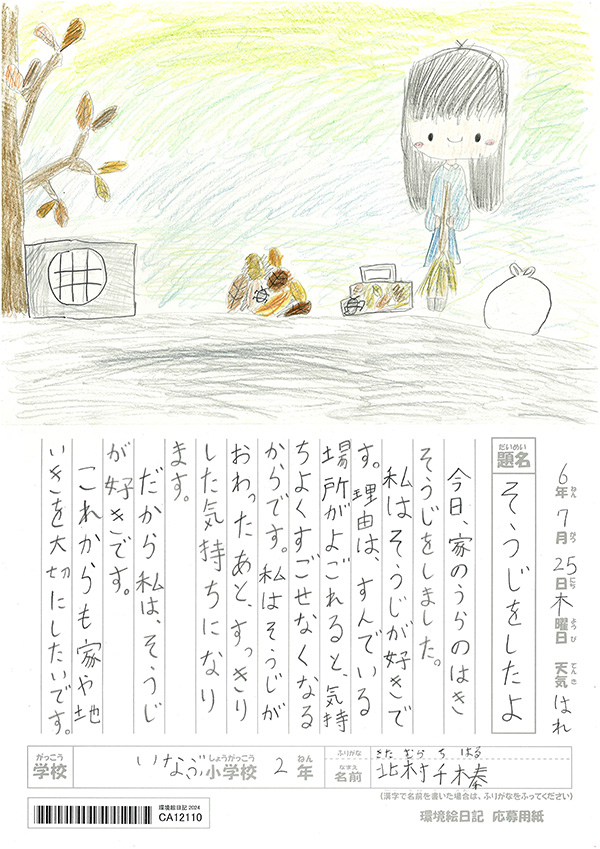 6年ねん7月がつ25日にち木曜日ようび 天気てんき はれ
だいめい
題名 そうじをしたよ
今日、家のうらのはき
そうじをしました。
私はそうじが好きで
す。理由は、すんでいる
場所がよごれると、気持
ちよくすごせなくなる
からです。私はそうじが
おわったあと、すっきり
した気持ちになり
ます。
だから私は、そうじ
が好きです。
これからも家や地
いきを大切にしたいです。
がっこう しょうがっこう ねん
学校 いなぶ小学校 2年
ふりがな きたむら ちはる
なまえ
名前 北村千椿
(漢字で名前を書いた場合は、ふりがなをふってください)
環境絵日記 2024
CA12110
環境絵日記 応募用紙